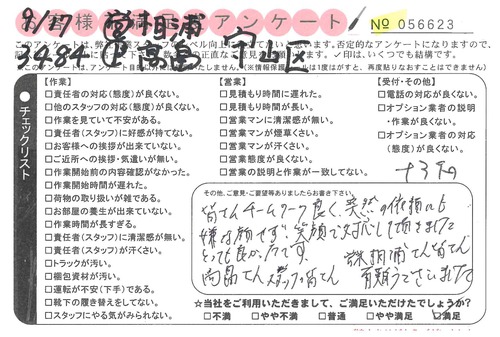 9/17 営 相浦
アンケート
No 056623
3484
区
チェックリスト
【作業】
□責任者の対応(態度)が良くない。
□他のスタッフの対応(態度)が良くない。
□作業を見ていて不安がある。
□責任者(スタッフ)に好感が持てない。
□お客様への挨拶が出来ていない。
□ご近所への挨拶・気遣いが無い。
□作業開始前の内容確認がなかった。
□作業開始時間が遅れた。
□荷物の取り扱いが雑である。
□お部屋の養生が出来ていない。
□作業時間が長すぎる。
□責任者(スタッフ)に清潔感が無い。
□責任者(スタッフ)が汗くさい。
□トラックが汚い。
□梱包資材が汚い。
□運転が不安(下手)である。
□靴下の履き替えをしてない。
□スタッフにやる気がみられない。
【営業】
□見積もり時間に遅れた。
□見積もり時間が長い。
□営業マンに清潔感が無い。
□営業マンが煙草くさい。
□営業マンが汗くさい。
□営業態度が良くない。
□営業の説明と作業が一致してない。
【受付・その他】
□電話の対応が良くない。
□オプション業者の説明
・作業が良くない。
□オプション業者の対応
(態度)が良くない。
その他、ご意見・ご要望等ありましたらお書き下さい。
皆さんチームワーク良く、突然の依頼にも
嫌な顔せず、笑顔で対応して頂きました
とても良かったです。
相浦さん 皆さん
スタッフの皆さん 有難うございました
☆当社をご利用いただきまして、ご満足いただけたでしょうか?
□不満 □やや不満 □普通 □やや満足 □満足